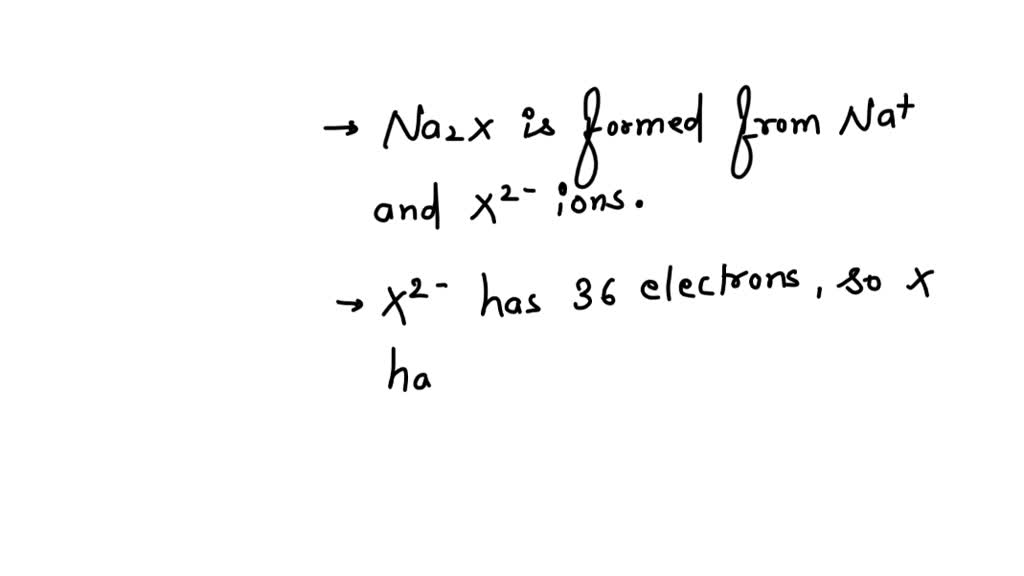 → Na₂x is formed from Na⁺
and x²⁻ ions.
→ x²⁻ has 36 electrons, so x
ha